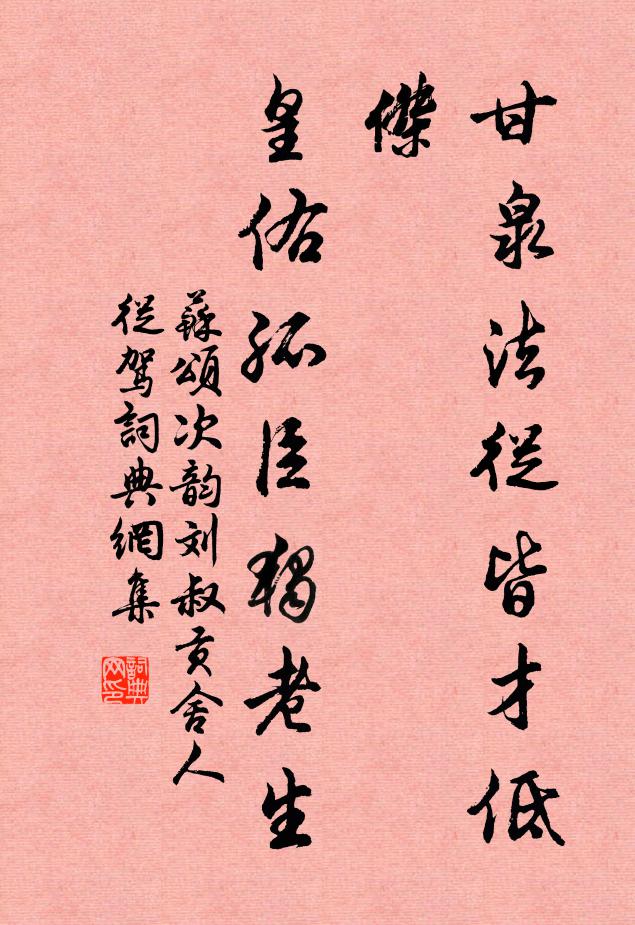 甘泉法從皆才低
傑
皇佑孤臣獨老生
蘇頌次韵刘叔貢舍人
從駕詞典網集
詞典
网印